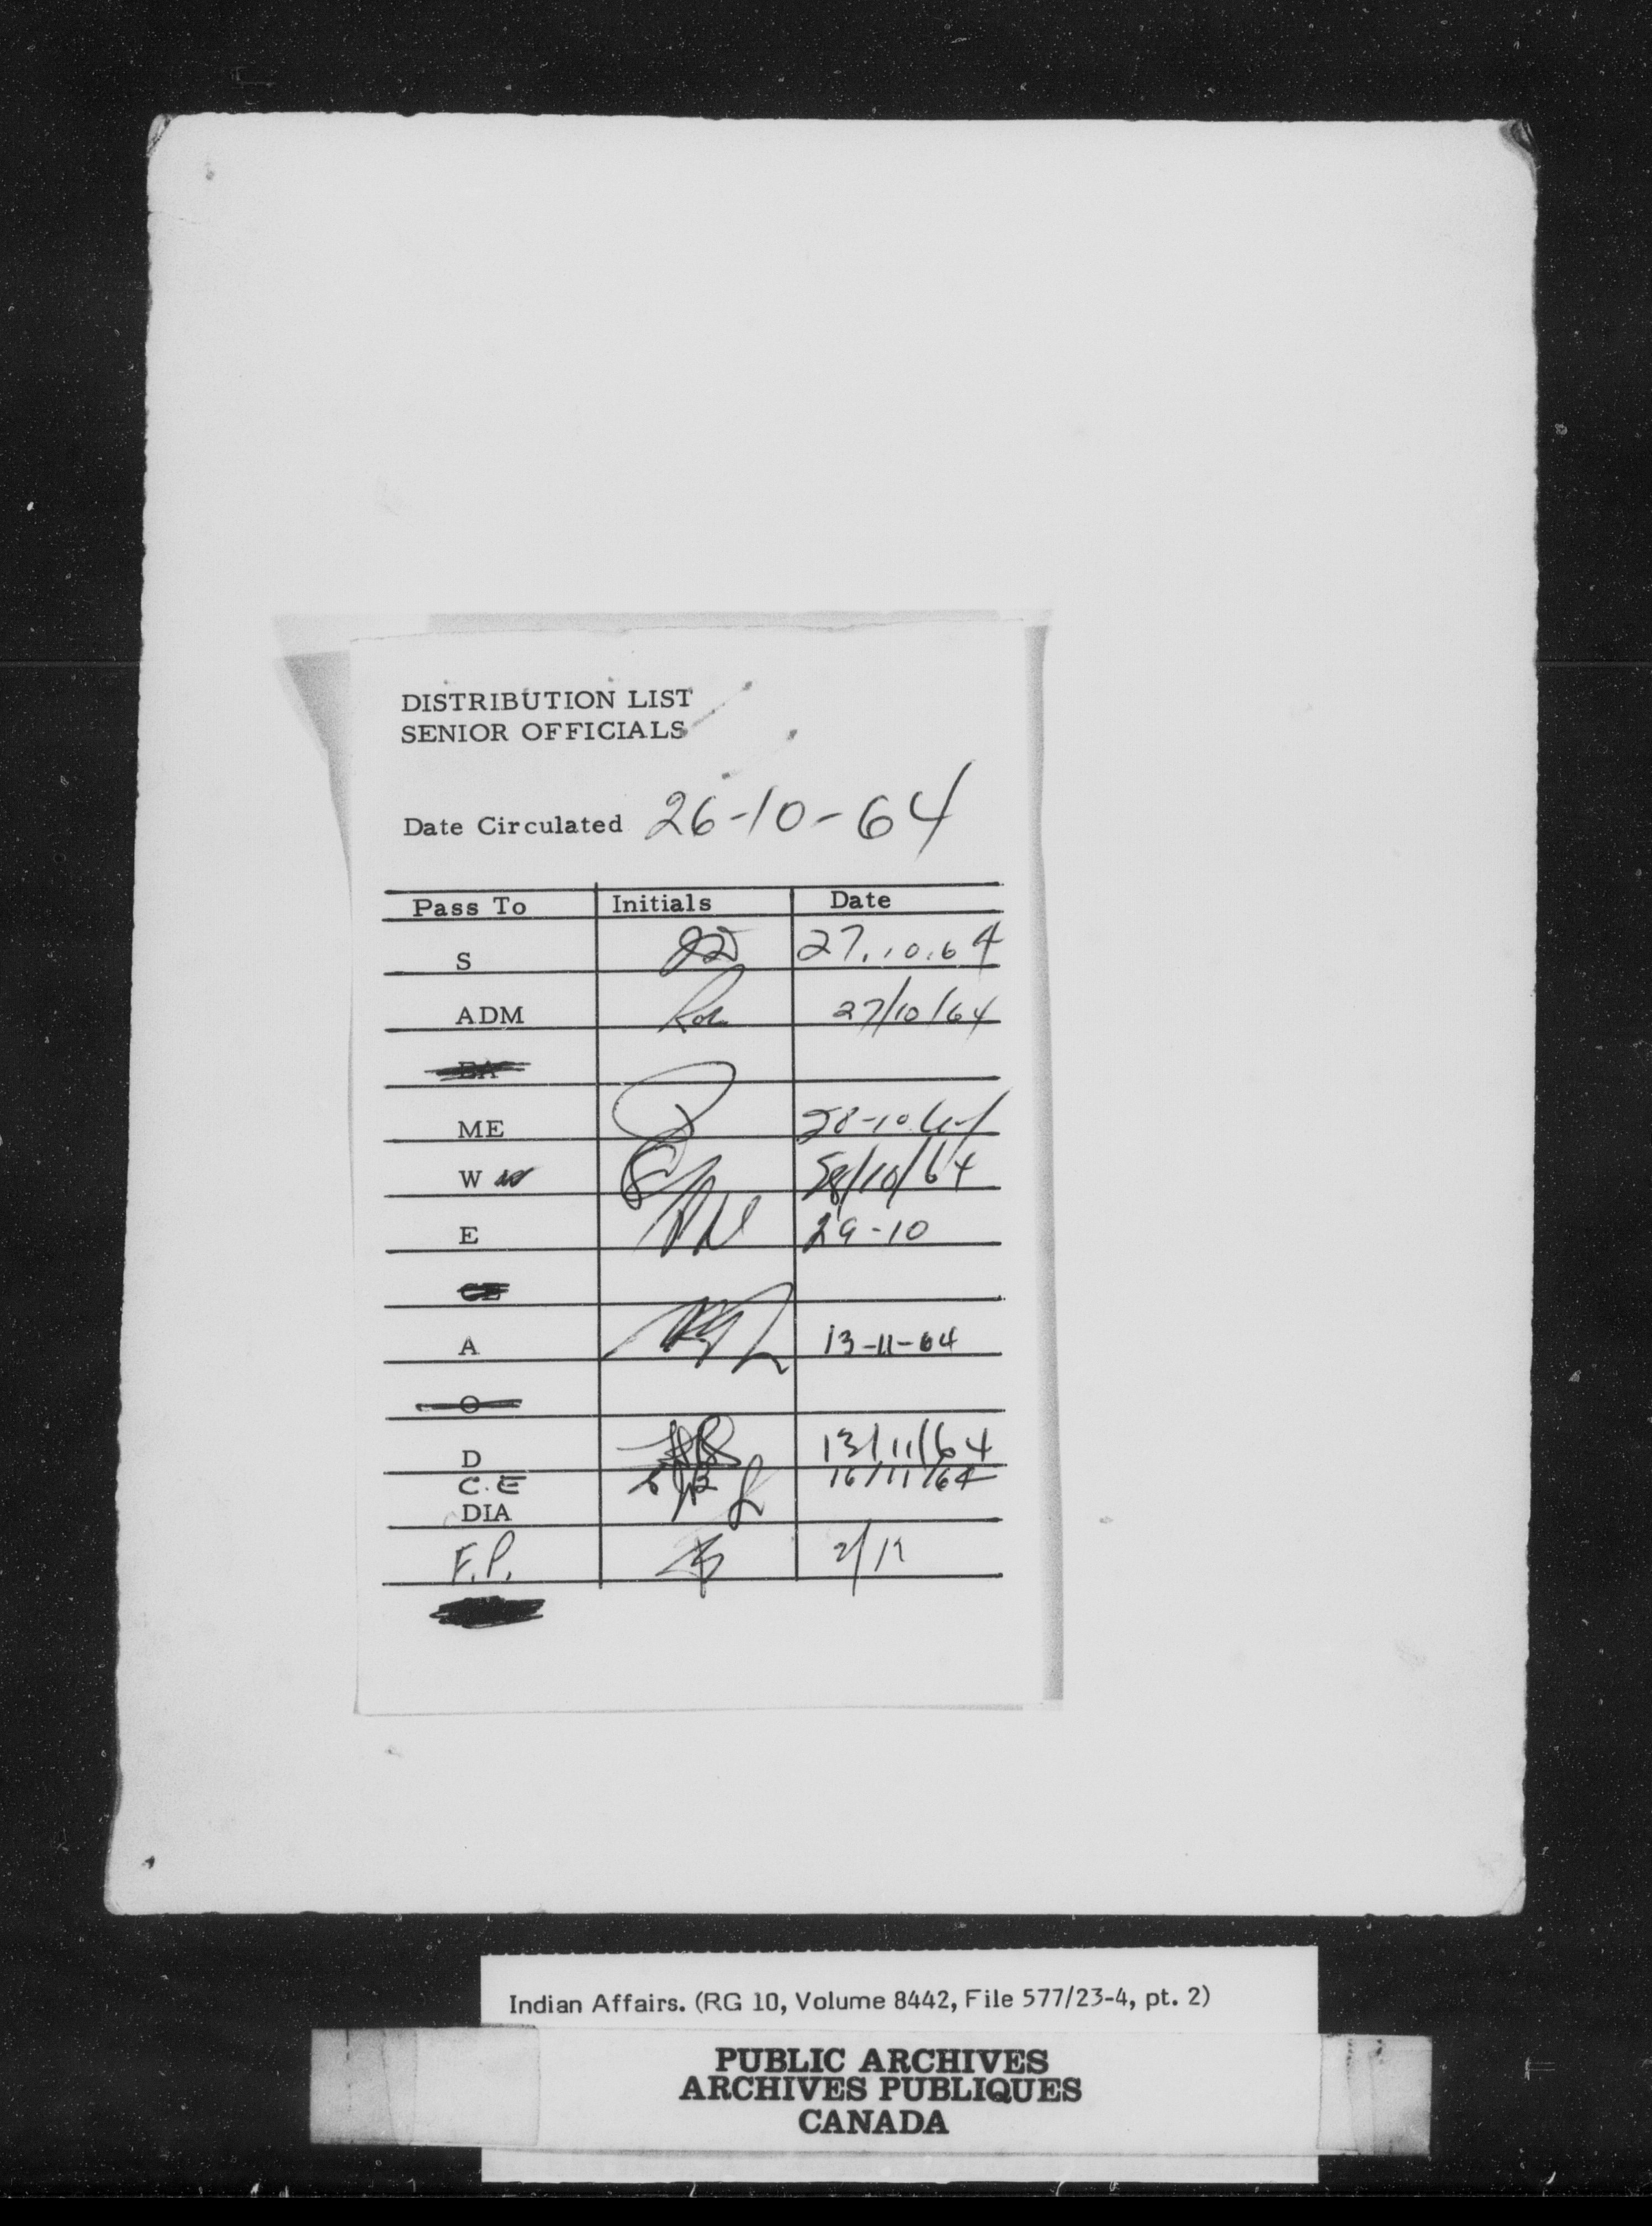 DISTRIBUTION LIST
SENIOR OFFICIALS
Date Circulated 26-10-64
Pass To Initials Date
S 27.10.64
ADM 27/10/64
EA
ME 28-10-64
W 28/10/64
E 29-10
CE
A 13-11-64
O
D 13/11/64
C.E 16/11/64
DIA
F.P.
Indian Affairs. (RG 10, Volume 8442, File 577/23-4, pt. 2)
PUBLIC ARCHIVES
ARCHIVES PUBLIQUES
CANADA